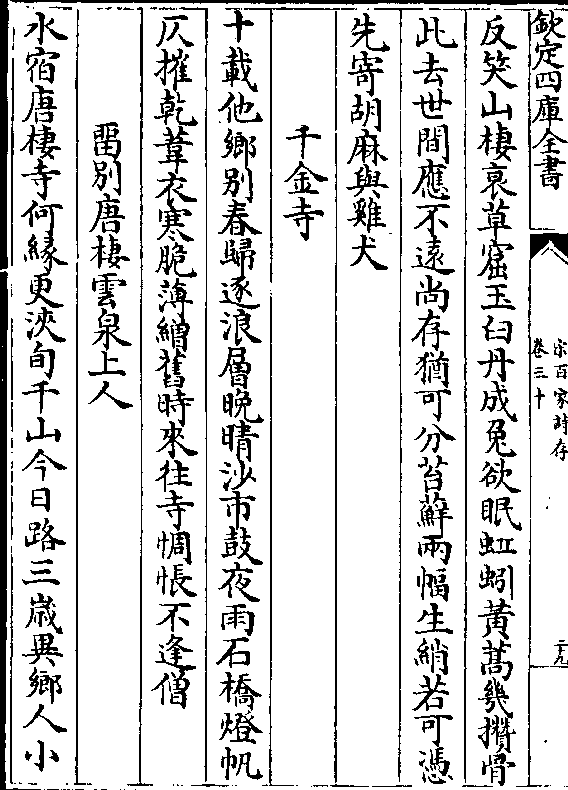 欽定四庫全書
宋百家詩存
卷三十
二九
反笑山棲哀草窟玉臼丹成兔欲眠虹蚓黃蒿幾攢骨
此去世間應不遠尚存猶可分苔蘚兩幅生綃若可憑
先寄胡麻與雞犬
千金寺
十載他鄉別春歸逐浪層晚晴沙市鼓夜雨石橋燈帆
仄摧乾葦衣寒脆薄繒舊時來往寺惆悵不逢僧
畱別唐棲雲泉上人
水宿唐棲寺何緣更浹旬千山今日路三歲異鄉人小